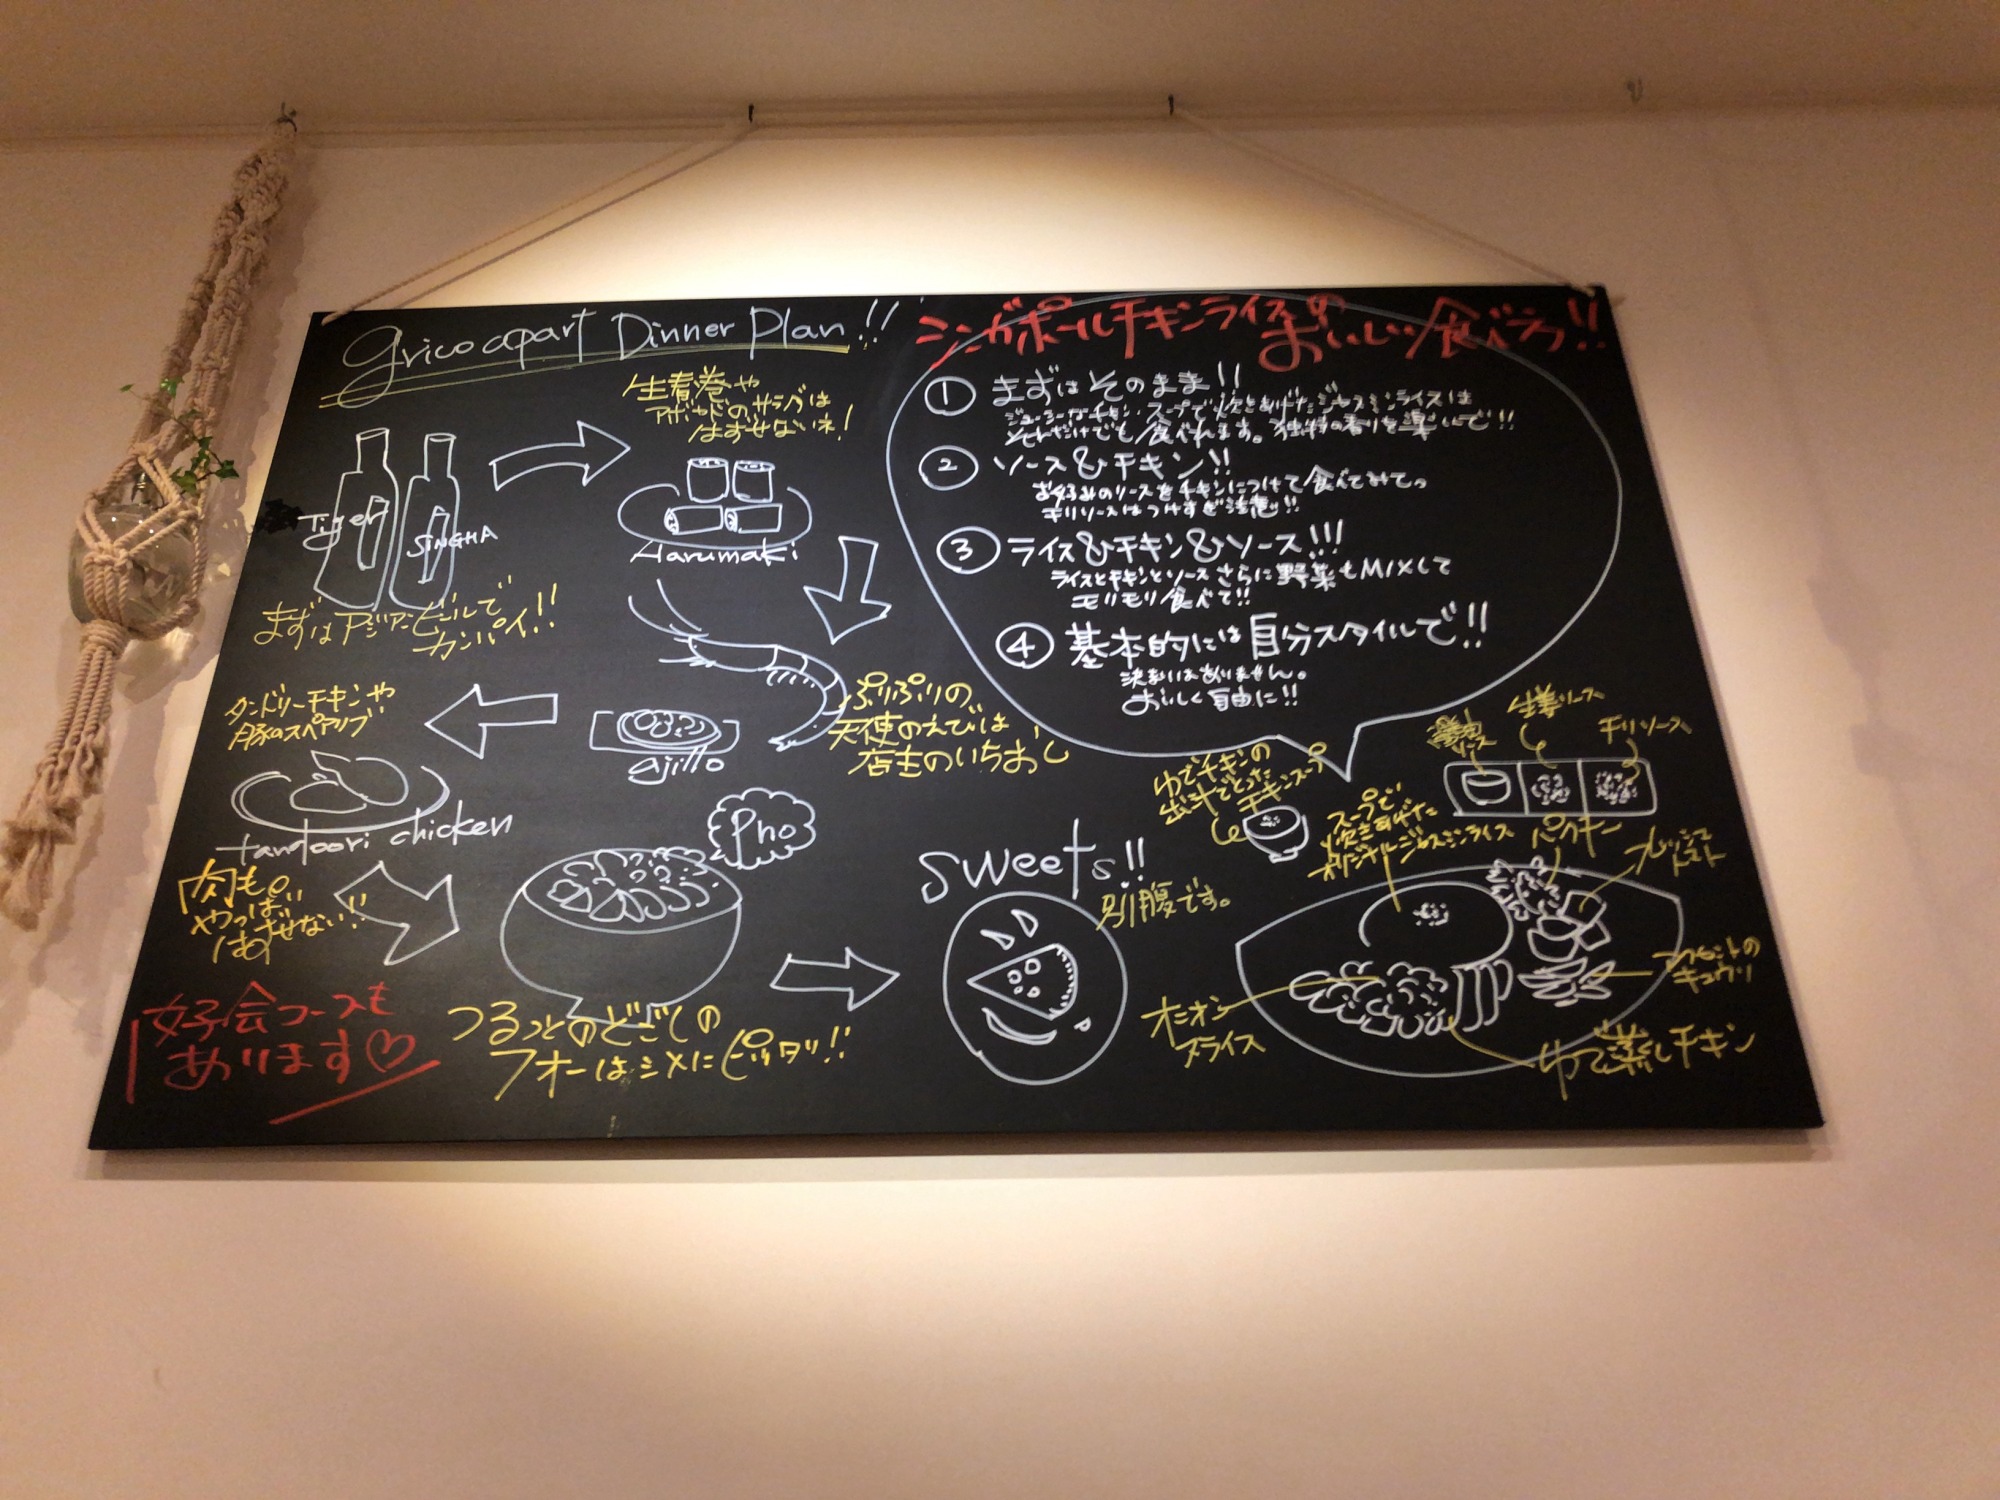 grico apart Dinner Plan!!
生春巻や
アボカドのサラダは
はずせないネ!
Tiger
SINGHA
Harumaki
まずはアジアンビールで
カンパイ!!
ぷりぷりの、
天使のえびは
店主のいちおし
ajillo
タンドリーチキンや
豚のスペアリブ
tandoori chicken
肉も
やっぱり
はずせない!!
Pho
つるっとのどごしの
フォーはシメにピッタリ!!
女子会コースも
あります♡
sweets!!
別腹です。
シンガポールチキンライスの
おいしい食べ方!!
① まずはそのまま!!
ジューシーなチキン、スープで炊きあげたジャスミンライスは
それだけでも食べれます。独特の香りを楽しんで!!
② ソース&チキン!!
お好みのソースをチキンにつけて食べてみてっ
チリソースはつけすぎ注意!!
③ ライス&チキン&ソース!!!
ライスとチキンとソースさらに野菜もMIXして
モリモリ食べて!!
④ 基本的には自分スタイルで!!
決まりはありません。
おいしく自由に!!
醤油
ソース
生姜ソース
チリソース
ゆでチキンの
出汁でとった
チキンスープ
スープで
炊きあげた
オリジナルジャスミンライス
パクチー
フレッシュ
トマト
アクセントの
キュウリ
オニオン
スライス
ゆで蒸しチキン